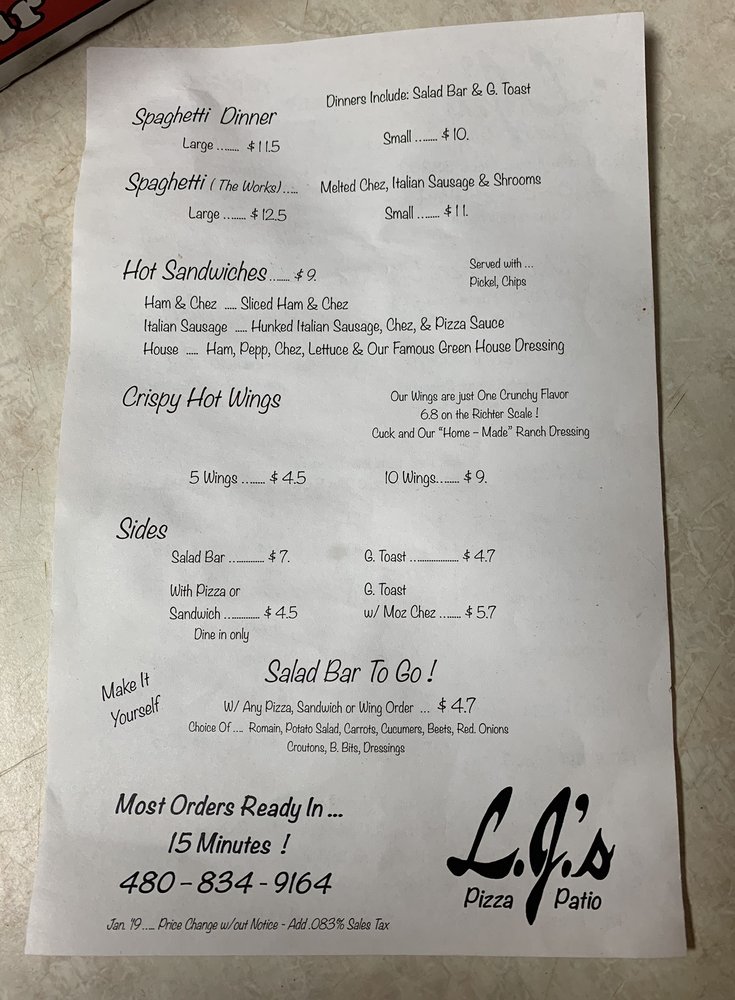 Dinners Include: Salad Bar & G. Toast
Spaghetti Dinner
Large ....... $11.5
Small ....... $10.
Spaghetti (The Works)..... Melted Chez, Italian Sausage & Shrooms
Large ....... $12.5
Small ....... $11.
Hot Sandwiches....... $9.
Served with ...
Pickel, Chips
Ham & Chez ..... Sliced Ham & Chez
Italian Sausage ..... Hunked Italian Sausage, Chez, & Pizza Sauce
House ..... Ham, Pepp, Chez, Lettuce & Our Famous Green House Dressing
Crispy Hot Wings
Our Wings are just One Crunchy Flavor
6.8 on the Richter Scale !
Cuck and Our “Home – Made” Ranch Dressing
5 Wings ........ $4.5
10 Wings........ $9.
Sides
Salad Bar ............. $7.
G. Toast .................. $4.7
With Pizza or
Sandwich ............. $4.5
Dine in only
G. Toast
w/ Moz Chez ........ $5.7
Make It
Yourself
Salad Bar To Go !
W/ Any Pizza, Sandwich or Wing Order ... $4.7
Choice Of .... Romain, Potato Salad, Carrots, Cucumers, Beets, Red. Onions
Croutons, B. Bits, Dressings
Most Orders Ready In ...
15 Minutes !
480-834-9164
L.J.'s
Pizza Patio
Jan. '19..... Price Change w/out Notice - Add .083% Sales Tax